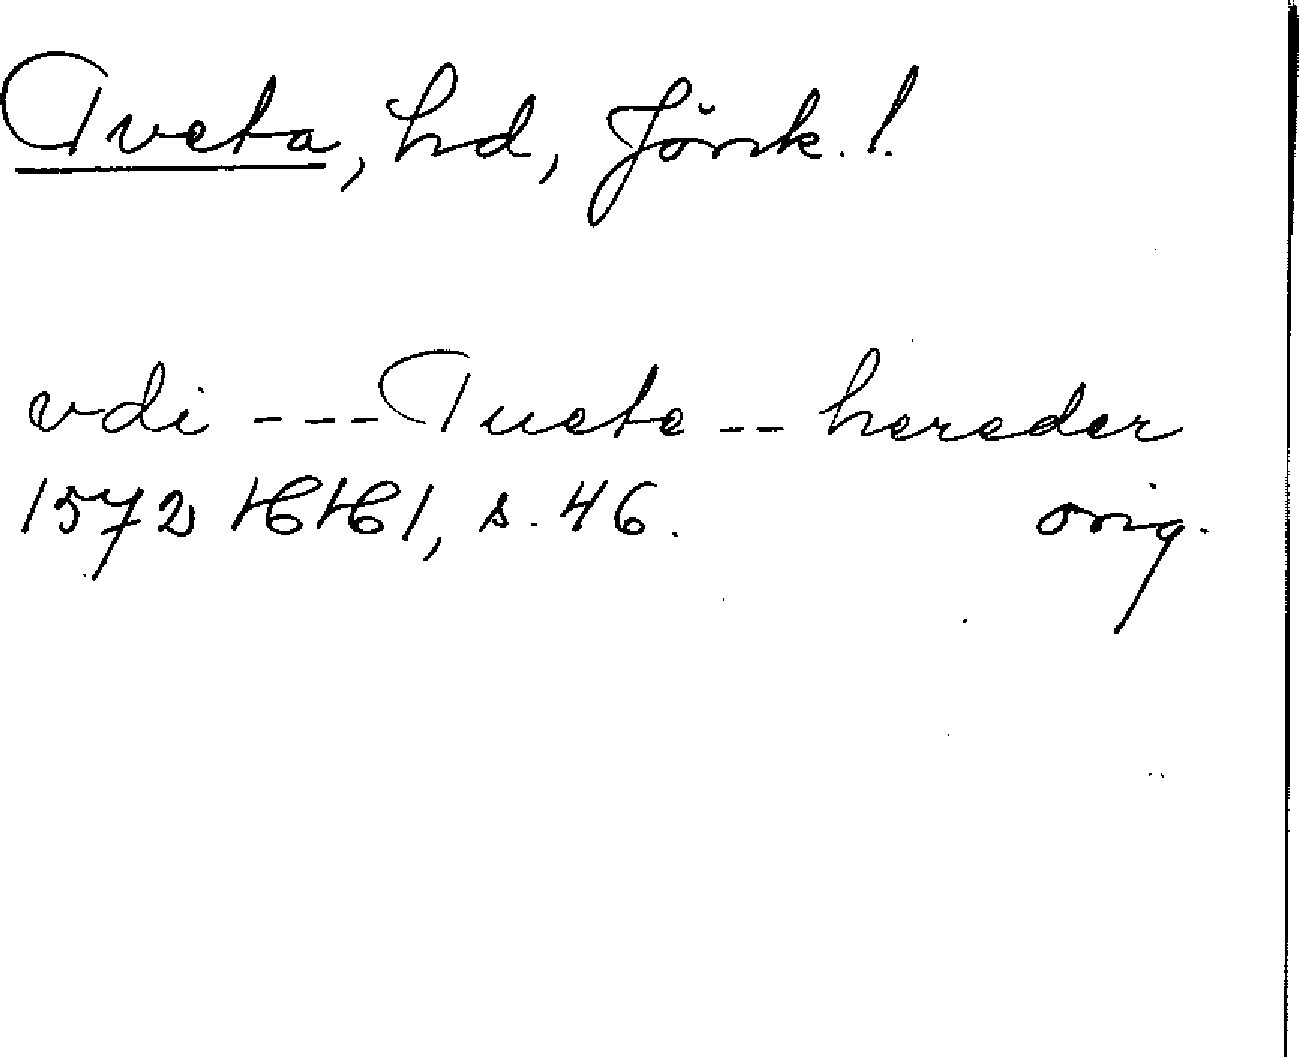 Tveta, hd, Jönk. l.
vdi --- Tuete -- hereder
1572 HH 1, s. 46. orig.